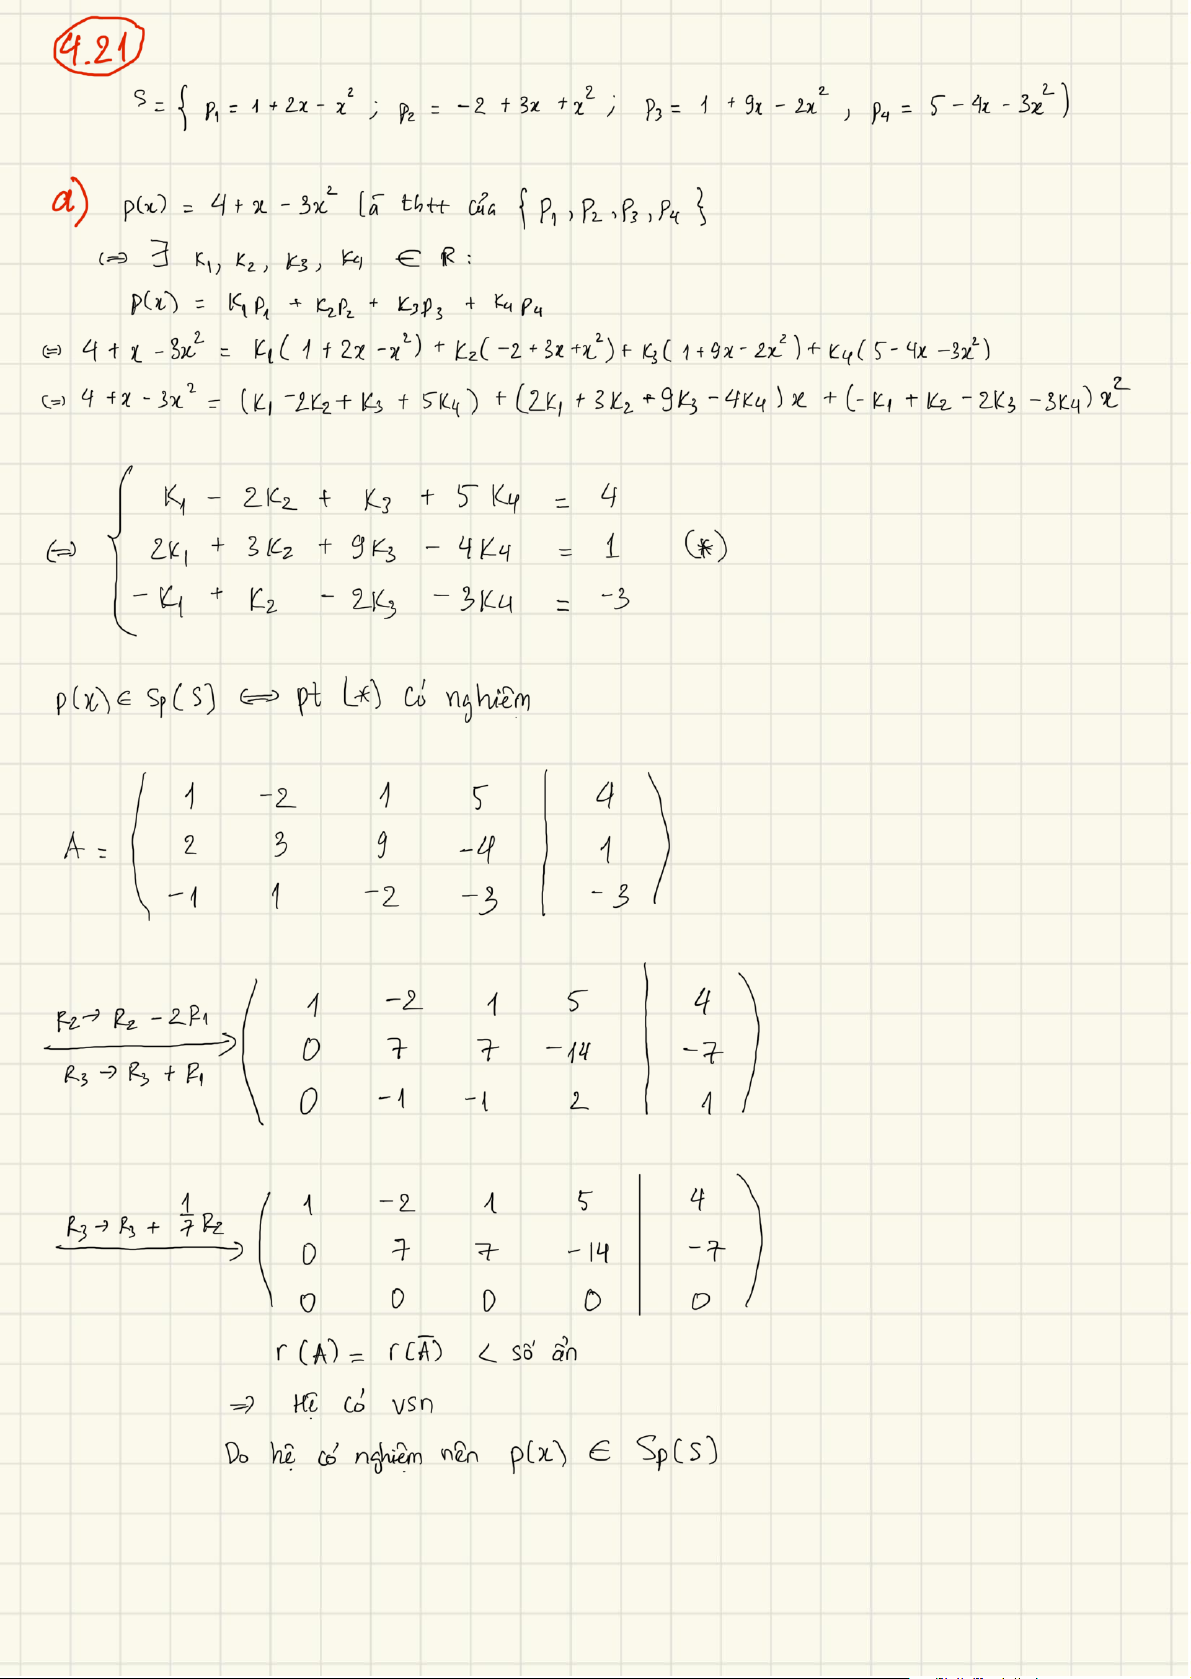 4.21
S = { p₁ = 1 + 2x - x² ; p₂ = -2 + 3x + x² ; p₃ = 1 + 9x - 2x² , p₄ = 5 - 4x - 3x² )
a) p(x) = 4 + x - 3x² là thtt của { P₁ , P₂ , P₃ , P₄ }
⇔ ∃ K₁, K₂, K₃, K₄ ∈ R :
p(x) = K₁P₁ + K₂P₂ + K₃P₃ + K₄P₄
⇔ 4 + x - 3x² = K₁( 1 + 2x - x²) + K₂( -2 + 3x + x²) + K₃( 1 + 9x - 2x²) + K₄( 5 - 4x - 3x²)
⇔ 4 + x - 3x² = (K₁ - 2K₂ + K₃ + 5K₄) + (2K₁ + 3K₂ + 9K₃ - 4K₄) x + (-K₁ + K₂ - 2K₃ - 3K₄) x²
K₁ - 2K₂ + K₃ + 5K₄ = 4
⇔ { 2K₁ + 3K₂ + 9K₃ - 4K₄ = 1 (*)
-K₁ + K₂ - 2K₃ - 3K₄ = -3
p(x) ∈ Sp(S) ⇔ pt (*) có nghiệm
1 -2 1 5 | 4
A = ( 2 3 9 -4 | 1 )
-1 1 -2 -3 | -3
1 -2 1 5 | 4
R₂ → R₂ - 2R₁ 0 7 7 -14 | -7
R₃ → R₃ + R₁ 0 -1 -1 2 | 1
1 -2 1 5 | 4
R₃ → R₃ + 1/7 R₂ 0 7 7 -14 | -7
0 0 0 0 | 0
r(A) = r(Ā) < số ẩn
⇒ Hệ có vsn
Do hệ có nghiệm nên p(x) ∈ Sp(S)